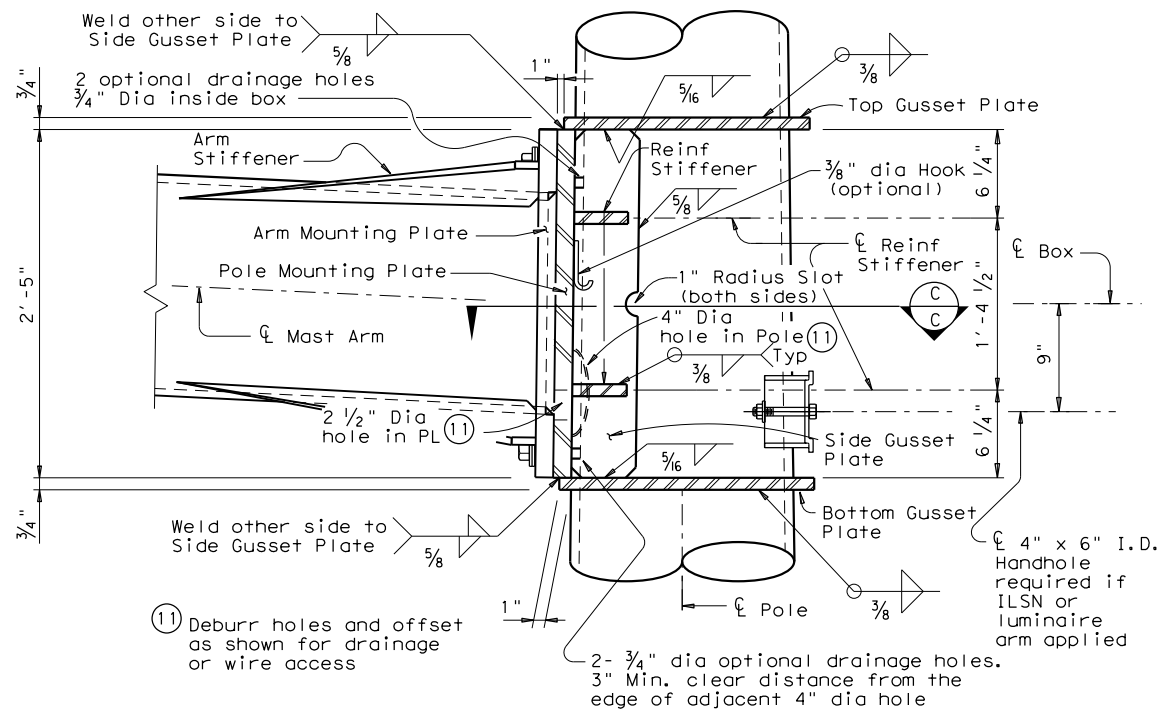 Weld other side to
Side Gusset Plate
5/8
3/4"
1"
2 optional drainage holes
3/4" Dia inside box
5/16
3/8
Top Gusset Plate
Arm
Stiffener
Reinf
Stiffener
3/8" dia Hook
(optional)
6 1/4"
5/8
Arm Mounting Plate
℄ Reinf
Stiffener
℄ Box
Pole Mounting Plate
1" Radius Slot
(both sides)
C
C
2'-5"
1'-4 1/2"
4" Dia
hole in Pole 11
℄ Mast Arm
Typ
3/8
9"
2 1/2" Dia
hole in PL 11
Side Gusset
Plate
6 1/4"
5/16
3/4"
Weld other side to
Side Gusset Plate
5/8
Bottom Gusset
Plate
℄ 4" x 6" I.D.
Handhole
required if
ILSN or
luminaire
arm applied
3/8
1"
℄ Pole
11 Deburr holes and offset
as shown for drainage
or wire access
2- 3/4" dia optional drainage holes.
3" Min. clear distance from the
edge of adjacent 4" dia hole